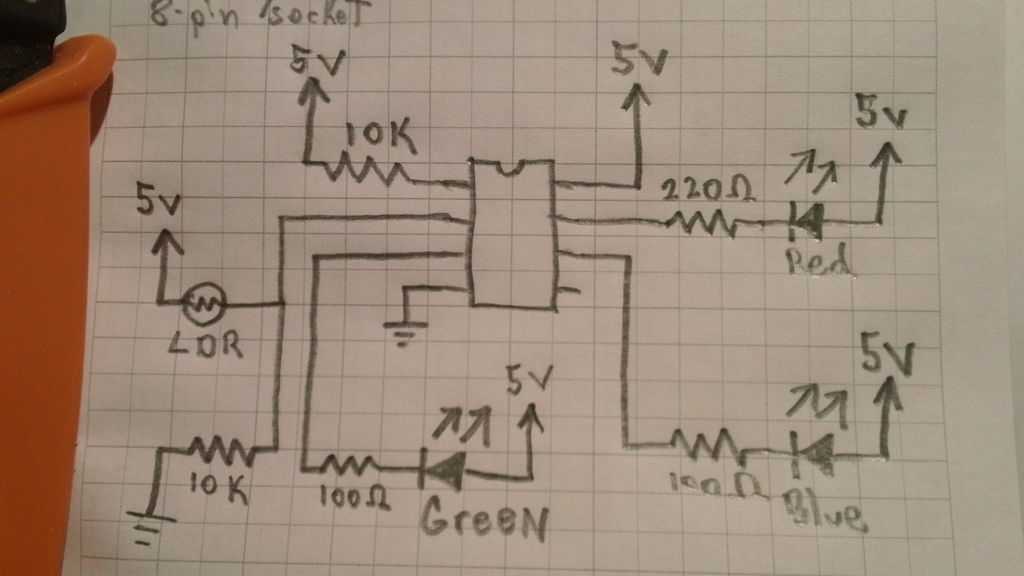 8-pin /socket
5V
5V
5v
10K
220Ω
5v
Red
LDR
5V
5V
10K
100Ω
GreeN
100Ω
Blue